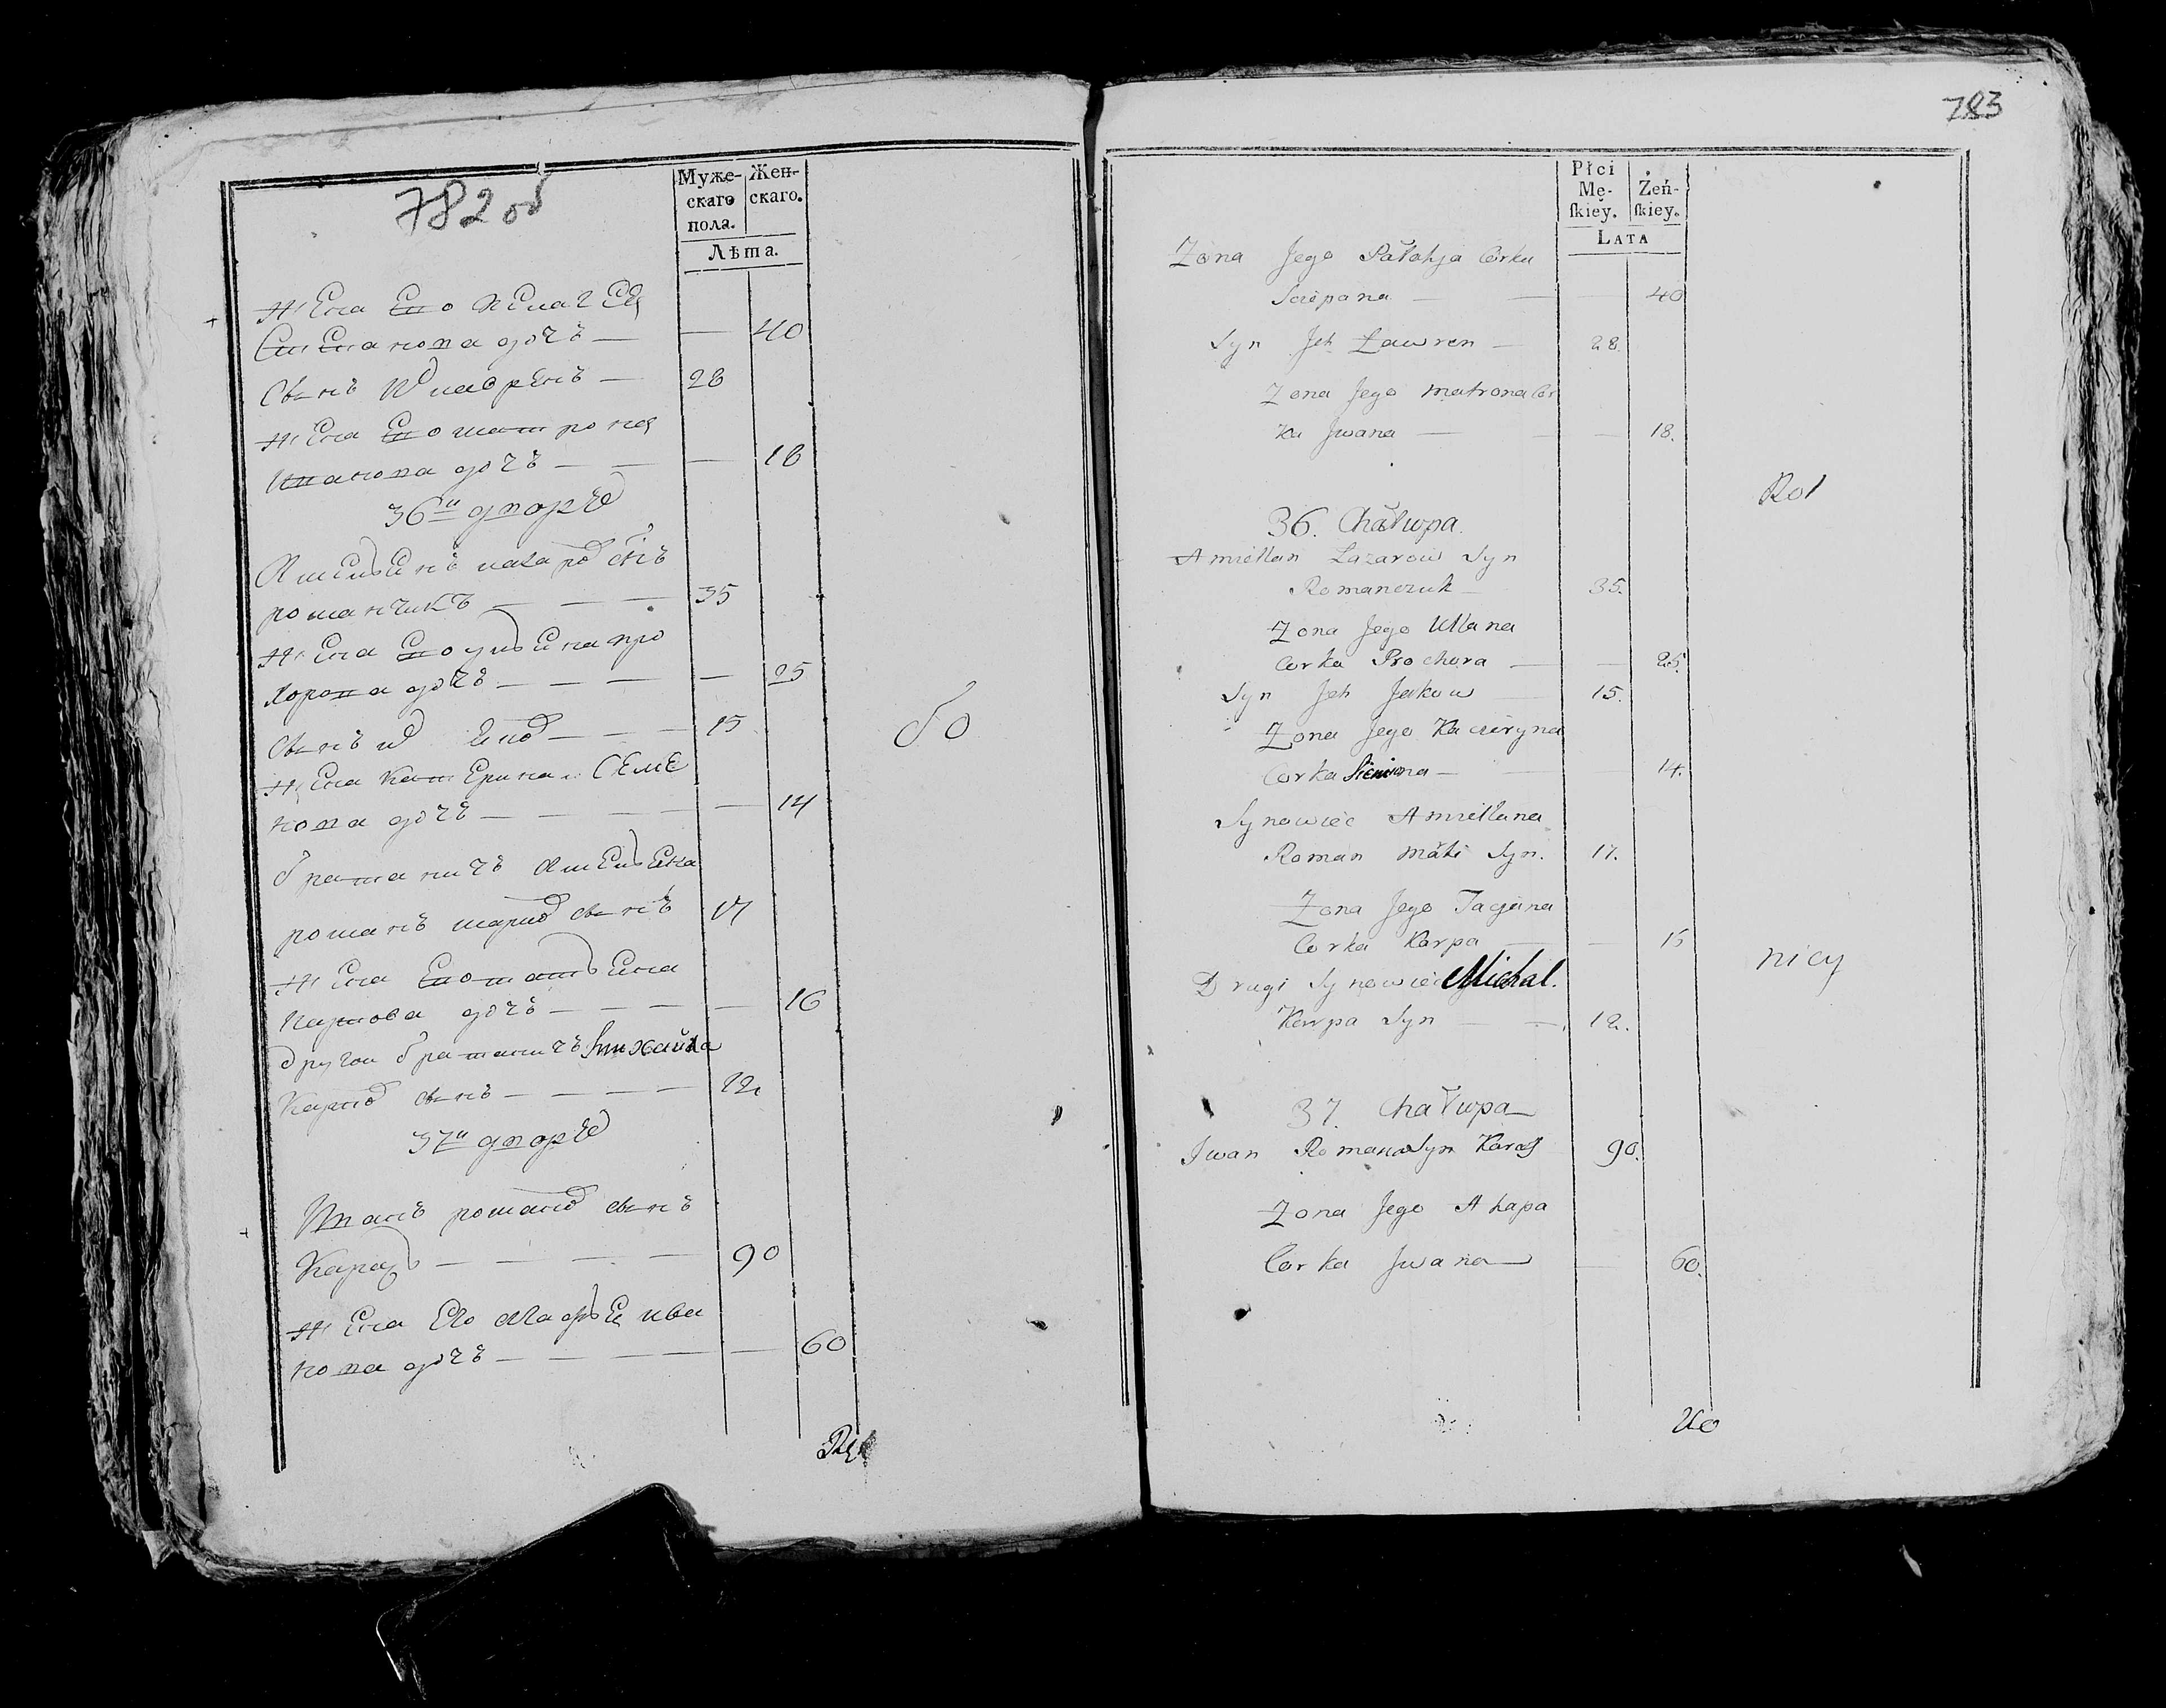 782 об
Муже-
скаго
пола.
Жен-
скаго.
Лѣта.
жена его пелагея
степанова дочъ — — 40
сынъ их лаврѣнъ — 28
жена его матрона
иванова дочъ — — — 18
36й дворъ
Амельянъ лазаров снъ
романчикъ — — — 35
жена его ульяна про
хорова дочъ — — — — 25
сынъ их — — — 15
жена катерина Семе
нова дочъ — — — — 14
братаничъ Амельяна
романъ сынъ 17
жена его татьяна
карпова дочъ — — — — 16
другои братаничъ михайла
карпов сынъ — — — — 12
37й дворъ
Иванъ романов сынъ
Карась — — — — 90
жена его агафья ива
нова дочъ — — — — — 60
бо
783
Płci
Mę-
ſkiey.
Żeń-
ſkiey.
Lata
Zona Jego Pałahja Corka
Sciepana — — — 40
Syn Jch Ławren — 28.
Zona Jego Matrona Cor
ka Jwana — — — 18.
36. Chałupa.
Amiellan Lazarow Syn
Romanczuk — 35.
Zona Jego Ullana
Corka Prochora — — 25.
Syn Jch Jakow — 15.
Zona Jego Kacieryna
Corka Siemiona — — 14.
Synowiec Amiellana
Roman Syn. 17.
Zona Jego Tacjana
Corka Karpa — — 15
Drugi Synowiec Michal.
Karpa Syn — — 12.
37. Chałupa
Jwan Romana Syn Karaś 90.
Zona Jego Ahapa
Corka Jwana — — 60.
Rol
nicy